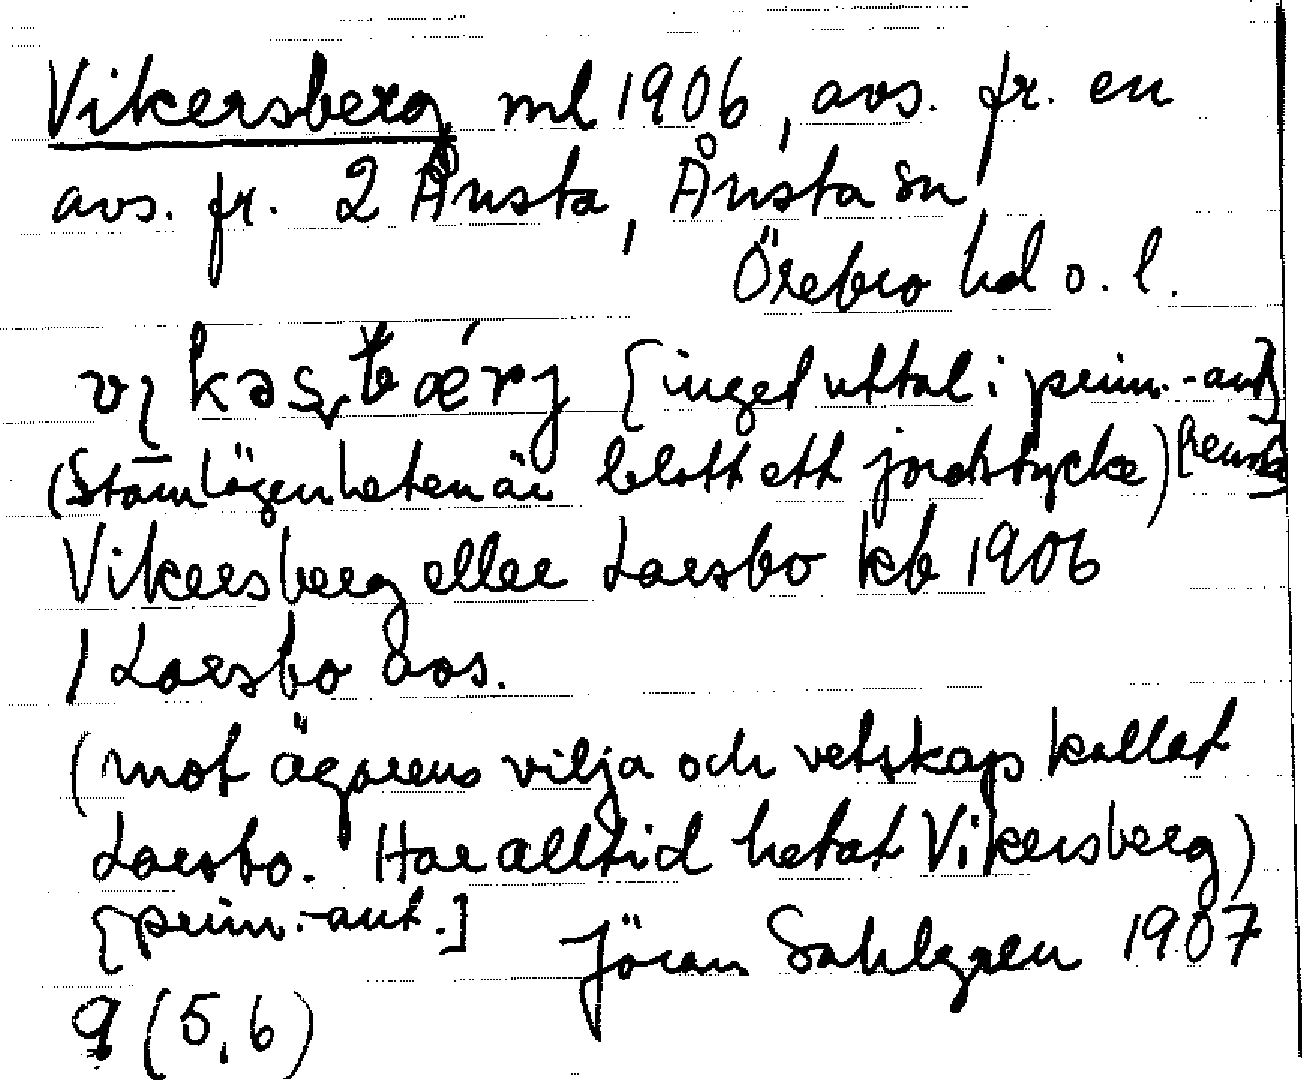 Vikersberg ml 1906, avs. fr. en
avs. fr. 2 Ånsta, Ånsta sn
Örebro hd o. l.
[inget uttal i prim.-ant]
(Stamlägenheten är blott ett jordstycke)
Vikersberg eller Larsbo kb 1906
/ Larsbo avs.
(mot ägarens vilja och vetskap kallat
Larsbo. Har alltid hetat Vikersberg)
[prim.-ant.] Jöran Sahlgren 1907
9 (5,6)